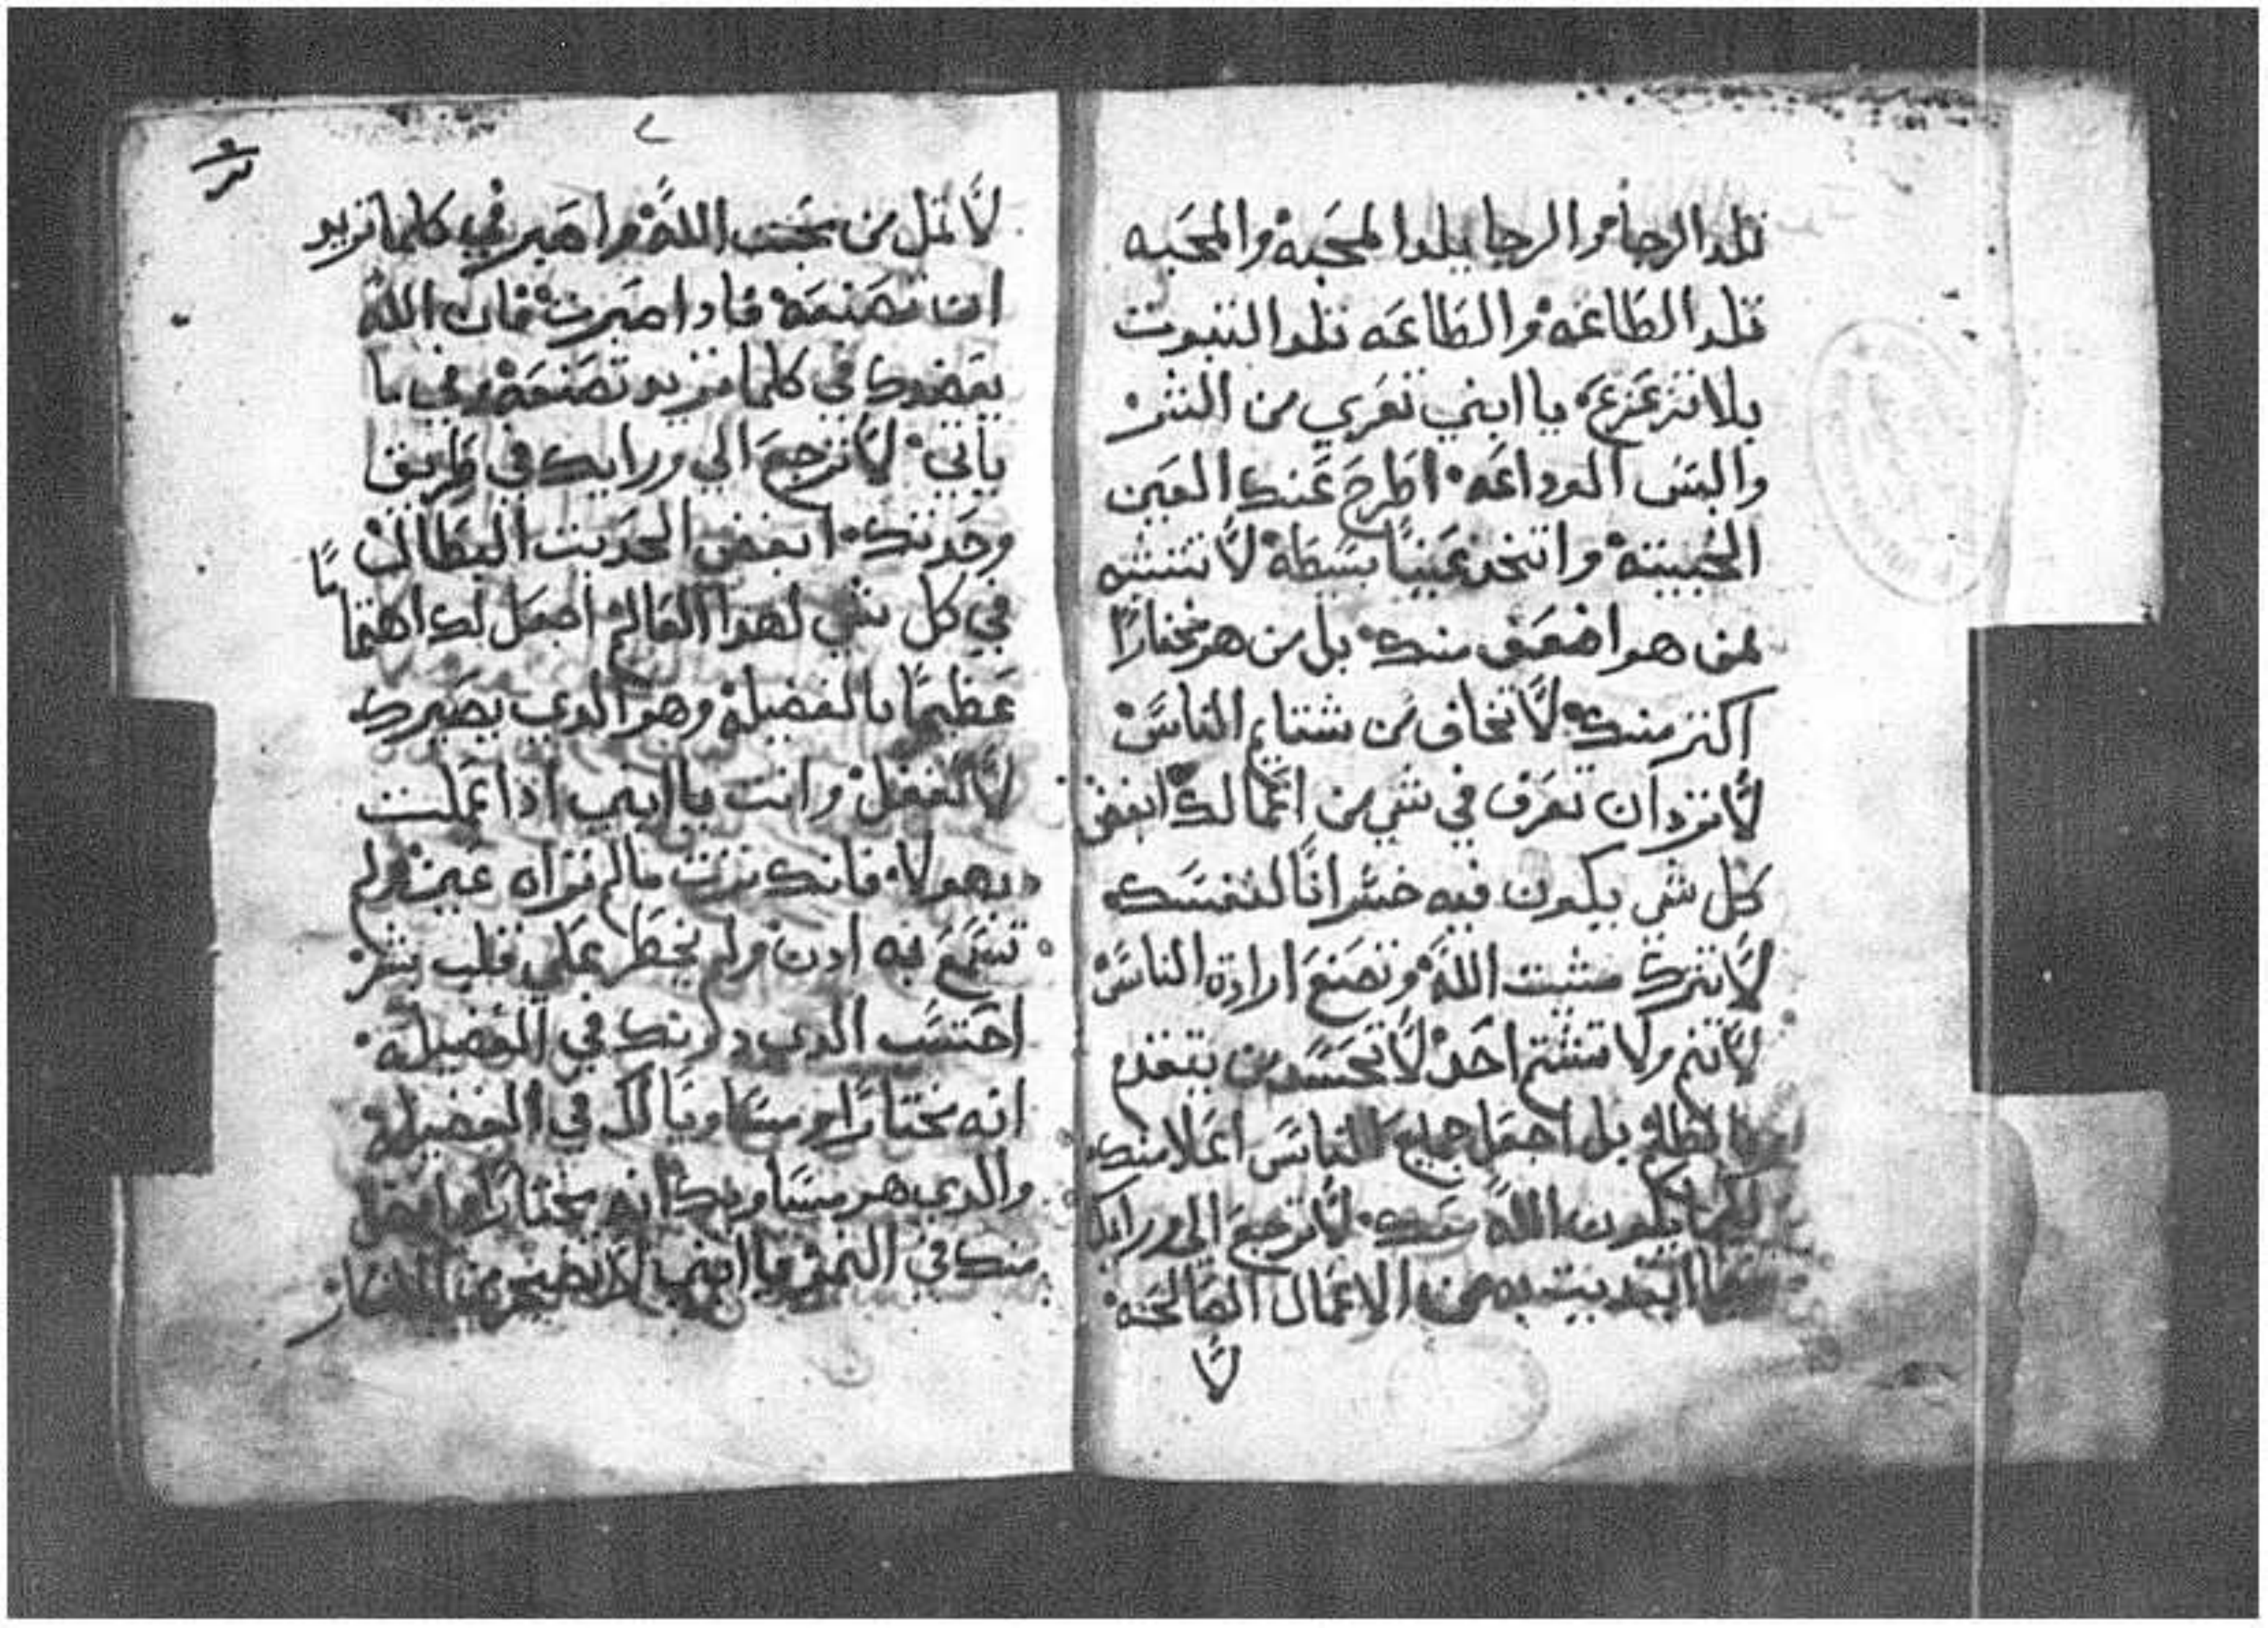 تلد الرجا والرجا يلد المحبه والمحبه
تلد الطاعه والطاعه تلد التبوت
بلا تزعزع يا ابني تعري من الشر
والبس الوداعه اطرح عنك العين
الخبيته واتخد عيناً بسطه لا تتشبه
بمن هو اضعف منك بل من هو مختاراً
اكتر منك لا تخاف من شتايم الناس
لا تزد ان تعرف في شي من اعمالك ابغض
كل شي يكون فيه خسراناً لنفسك
لا تترك مشيت الله وتصنع ارادة الناس
لا تنم ولا تشتم احد لا تحسد من يتقدم
بالظلم بل اجعل جميع الناس اعلا منك
يكون الله عندك لا ترجع الي ورايك
ابتديت به من الاعمال الصالحه
لا
لا تمل من محبت الله واصبر في كلما تريد
ان تصنعه فادا صبرت فان الله
يعضدك في كلما تريد تصنعه وفي ما
ياتي لا ترجع الي ورايك في طريق
وحدتك ابغض الحديت البطال
في كل شي لهدا العالم اجعل لك اهتماما
عظيماً بالفضيله وهو الدي يصيرك
لا تغفل وانت يا ابني ادا عملت
بهولا فانك ترت مالم تراه عين ولم
تسمع به ادن ولم يخطر علي قلب بشر
احتسب الدي دكرتك في الفضيله
انه مختاراً ومساوياً لك في الفضيله
والدي هو مساويك انه مختاراً وافضل
منك في النمو يا ابني لا تضجر من